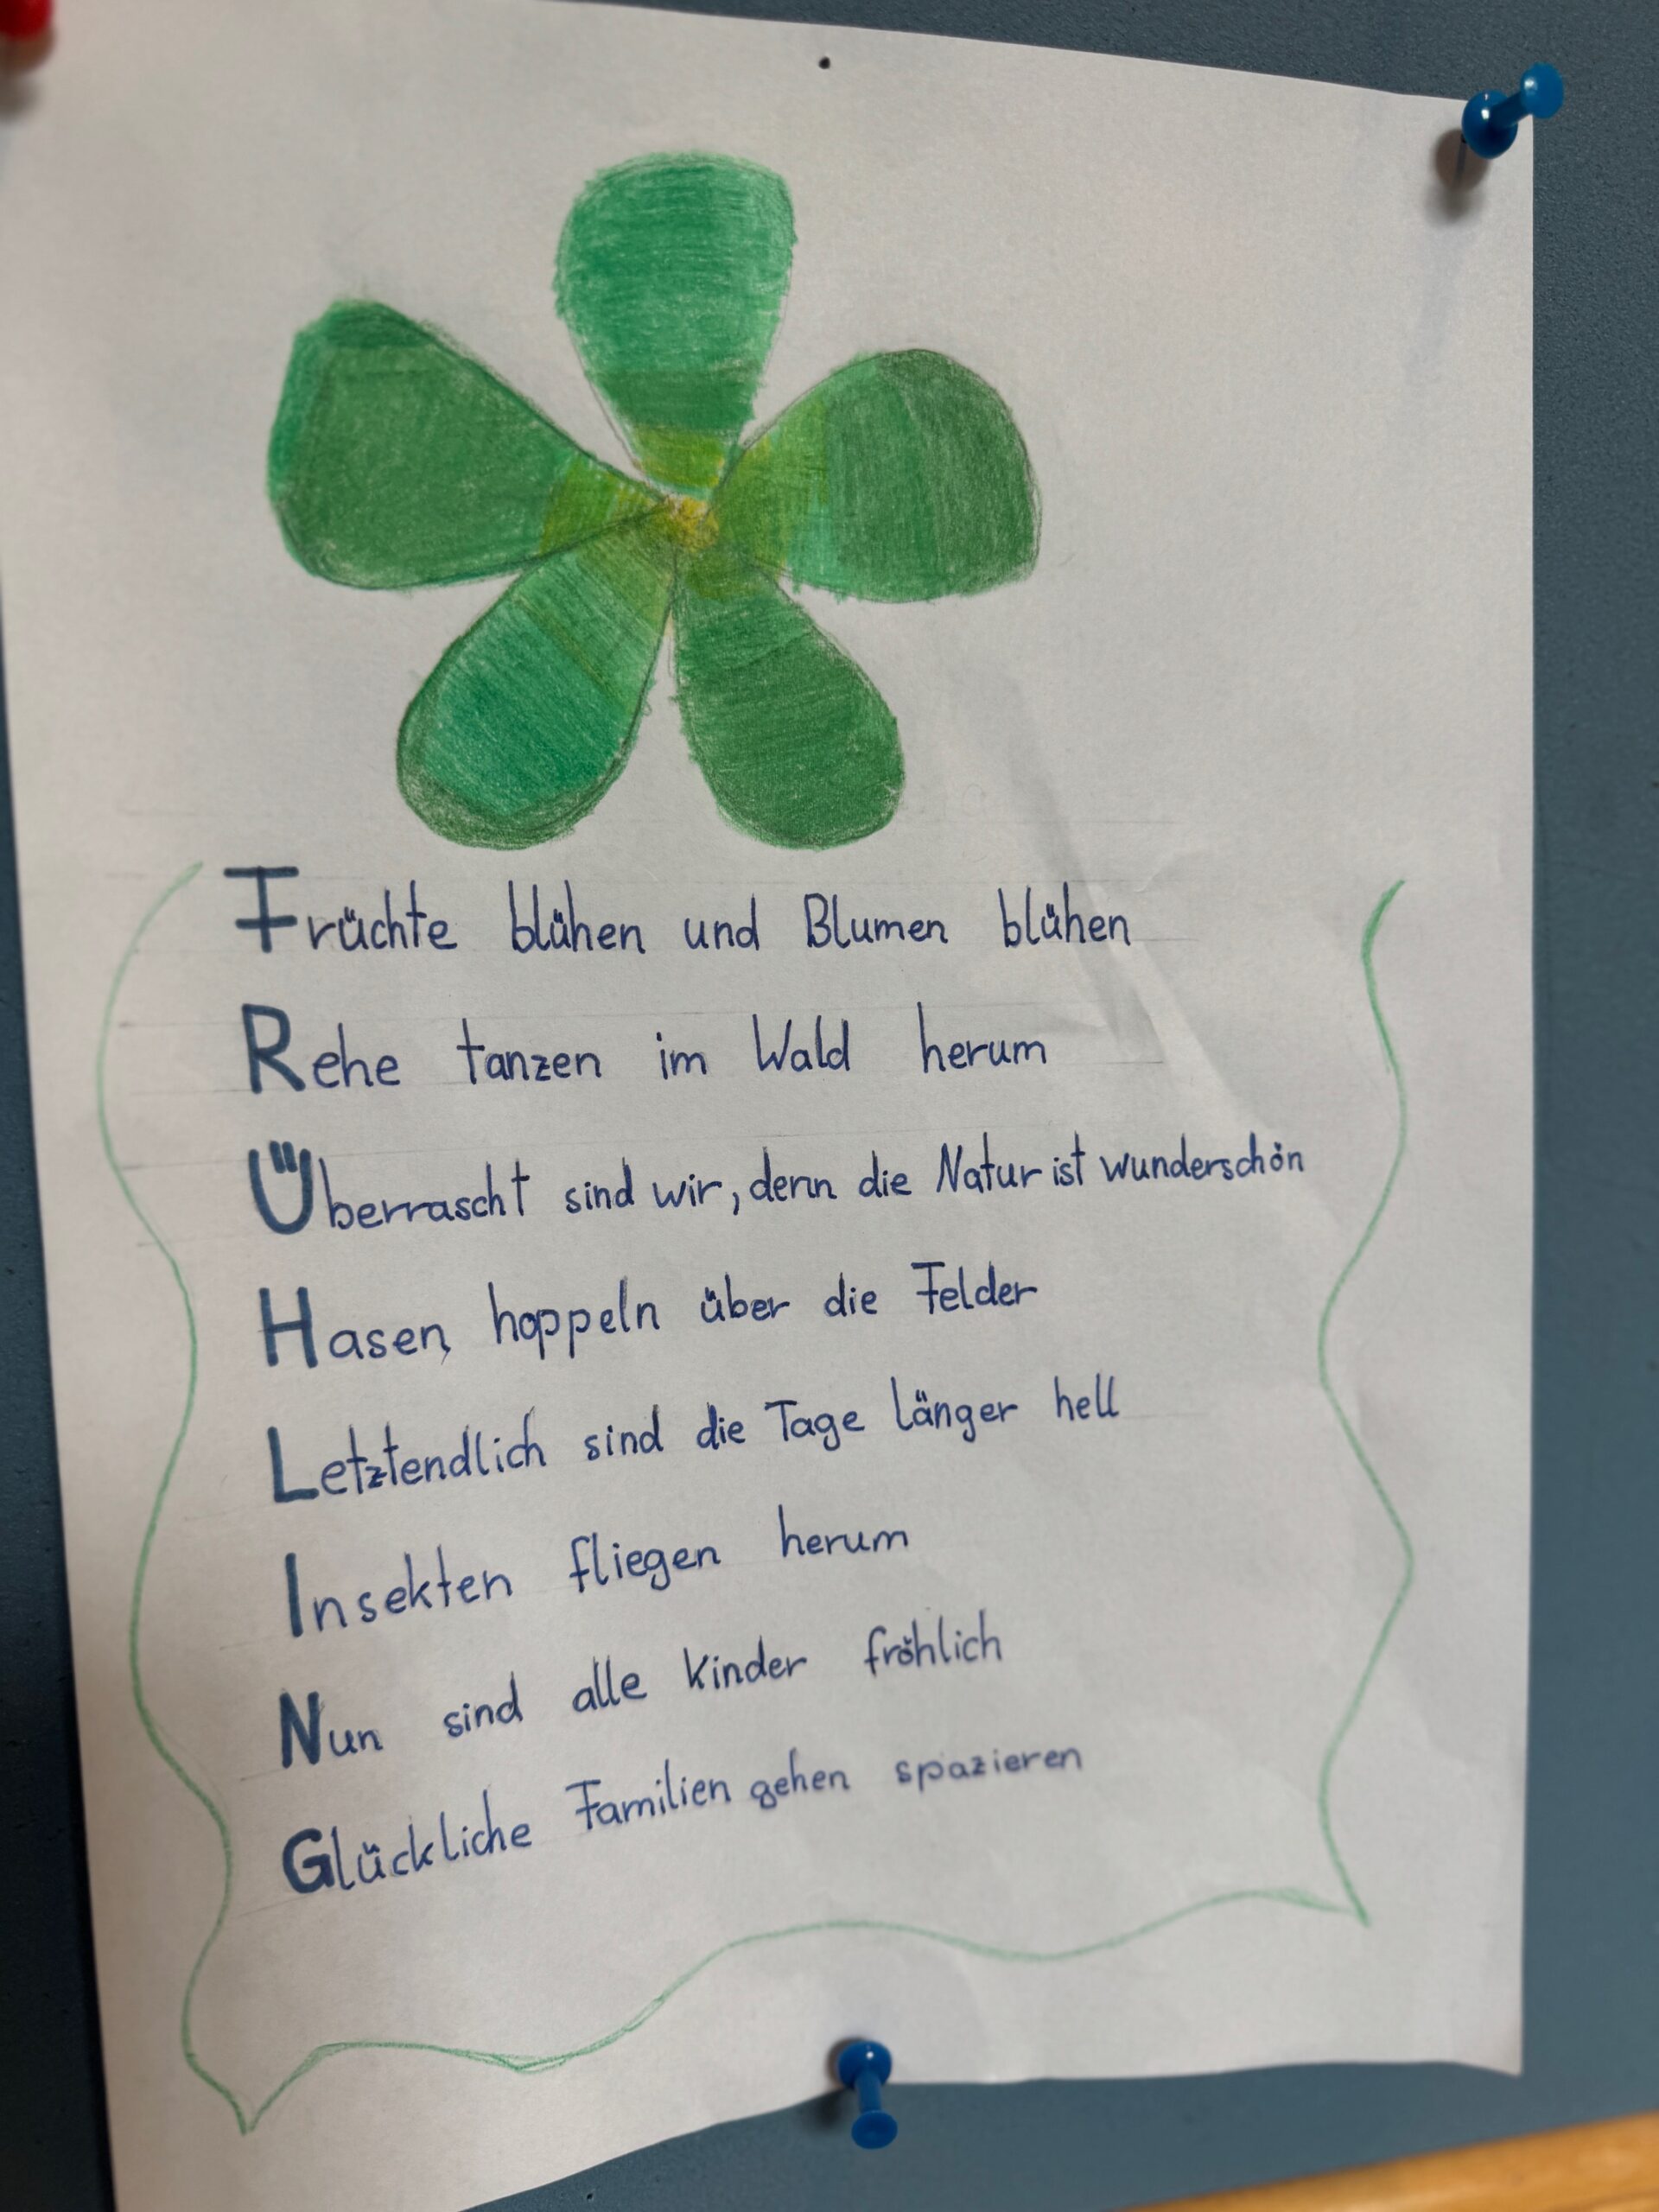 Früchte blühen und Blumen blühen
Rehe tanzen im Wald herum
Überrascht sind wir, denn die Natur ist wunderschön
Hasen hoppeln über die Felder
Letztendlich sind die Tage länger hell
Insekten fliegen herum
Nun sind alle Kinder fröhlich
Glückliche Familien gehen spazieren